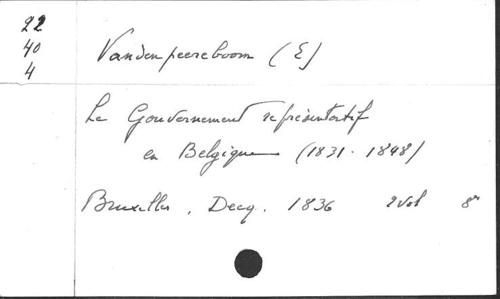 22
40
4
Vandenpeereboom (E)
Le Gouvernement représentatif
en Belgique (1831 - 1848)
Bruxelles, Decq. 1836 2 vol 8°